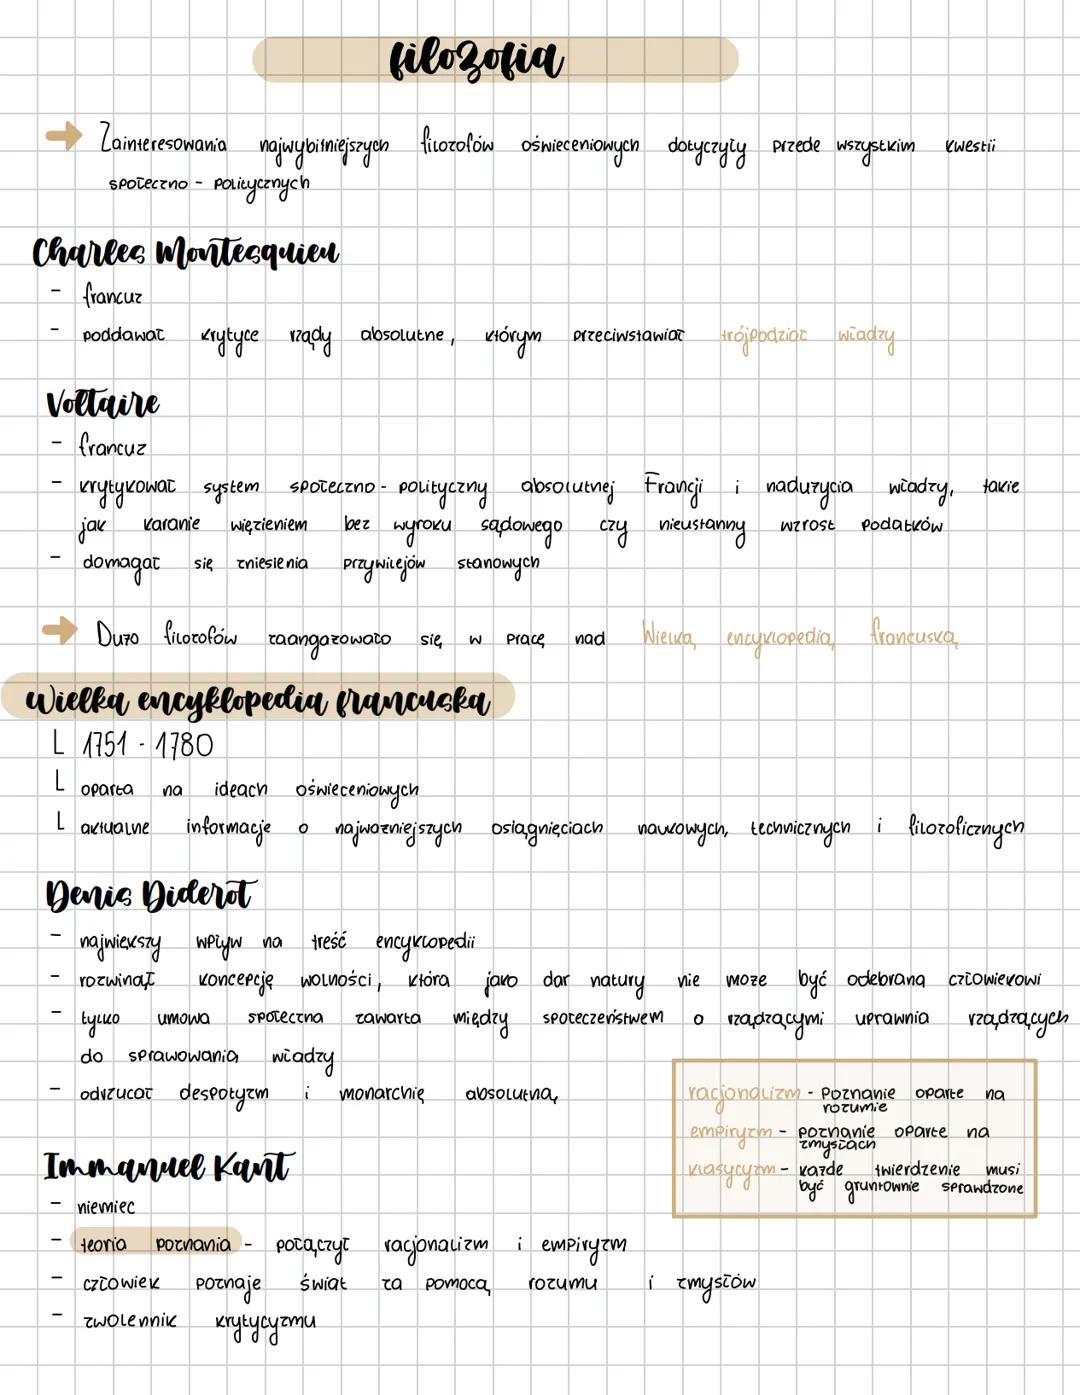 filozofia
→ Zainteresowania najwybitniejszych filozofów oświeceniowych dotyczyły przede wszystkim kwestii
społeczno - politycznych
Charles Montesquieu
- francuz
- poddawał krytyce rządy absolutne, którym przeciwstawiał trójpodział władzy
Voltaire
- francuz
- krytykował system społeczno - polityczny absolutnej Francji i nadużycia władzy, takie
jak karanie więzieniem bez wyroku sądowego czy nieustanny wzrost podatków
- domagał się zniesienia przywilejów stanowych
→ Dużo filozofów zaangażowało się w pracę nad Wielką encyklopedią francuską
Wielka encyklopedia francuska
L 1751 - 1780
L oparta na ideach oświeceniowych
L aktualne informacje o najważniejszych osiągnięciach naukowych, technicznych i filozoficznych
Denis Diderot
- największy wpływ na treść encyklopedii
- rozwinął koncepcję wolności, która jako dar natury nie może być odebrana człowiekowi
- tylko umowa społeczna zawarta między społeczeństwem a rządzącymi uprawnia rządzących
do sprawowania władzy
- odrzucał despotyzm i monarchię absolutną
racjonalizm - poznanie oparte na
rozumie
empiryzm - poznanie oparte na
zmysłach
klasycyzm - każde twierdzenie musi
być gruntownie sprawdzone
Immanuel Kant
- niemiec
- teoria poznania - połączył racjonalizm i empiryzm
- człowiek poznaje świat za pomocą rozumu i zmysłów
- zwolennik krytycyzmu